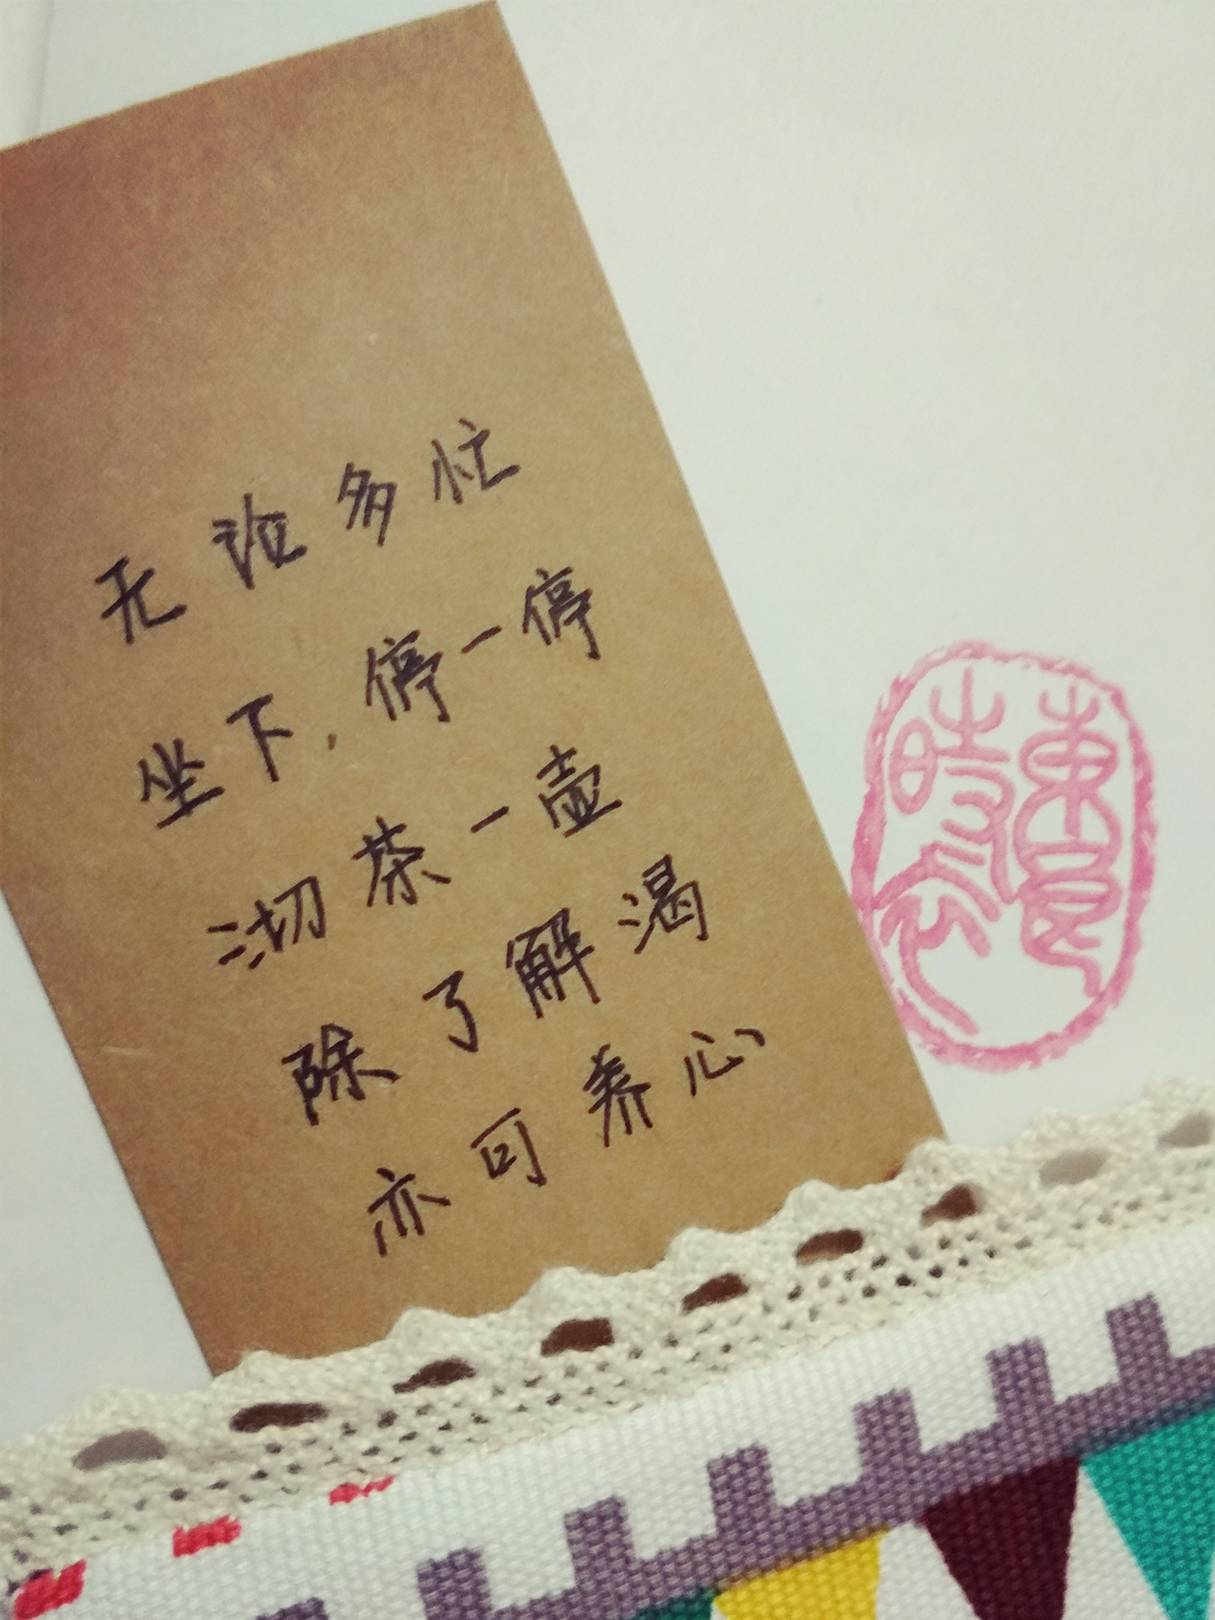 无论多忙
坐下,停一停
沏茶一壶
除了解渴
亦可养心